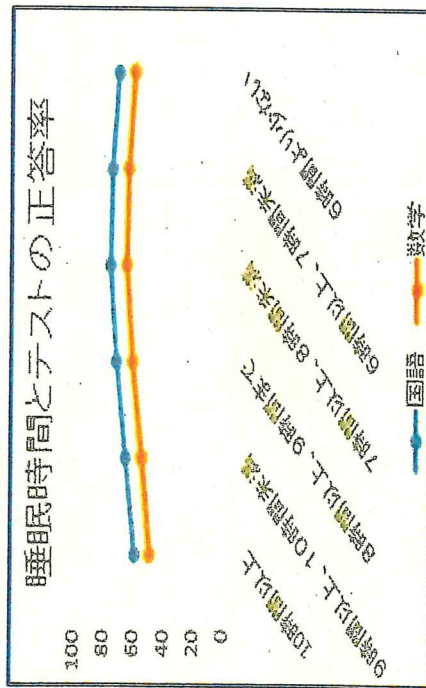 睡眠時間とテストの正答率
100
80
60
40
20
0
10時間以上
9時間以上、10時間未満
8時間以上、9時間まで
7時間以上、8時間未満
6時間以上、7時間未満
6時間より少ない
国語
数学